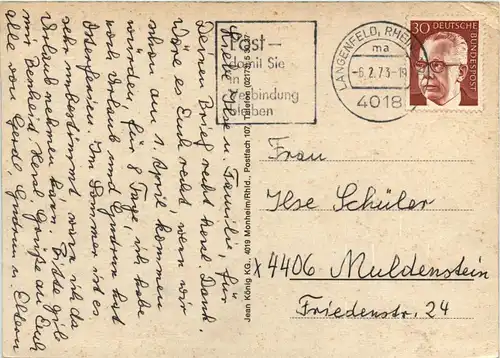 Liebe Ilse u. Familie, für
Deinen Brief recht herzl. Dank.
Wäre es Euch recht, wenn wir
schon am 1. April kommen
würden, für 8 Tage, ich habe
noch Urlaub und Gudrun hat
Osterferien. Im Sommer ist es
sehr unbestimmt wann ich da
Urlaub nehmen kann. Bitte gib
mir Bescheid. Herzl. Grüße an Euch
alle von Gerda, Gudrun u. Eltern
Jean König KG., 4019 Monheim/Rhld., Postfach 107, Telefon (02173) 5
Post –
damit Sie
in
Verbindung
bleiben
LANGENFELD, RHEINL
ma
-6.2.73-19
4018
30 DEUTSCHE
BUNDESPOST
Frau
Ilse Schüler
X4406 Muldenstein
Friedenstr. 24